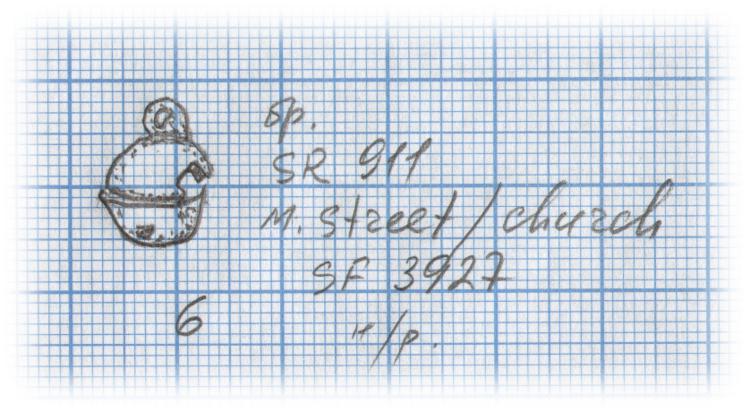 бр.
SR 911
M. Street / church
SF 3927
н/р.
6